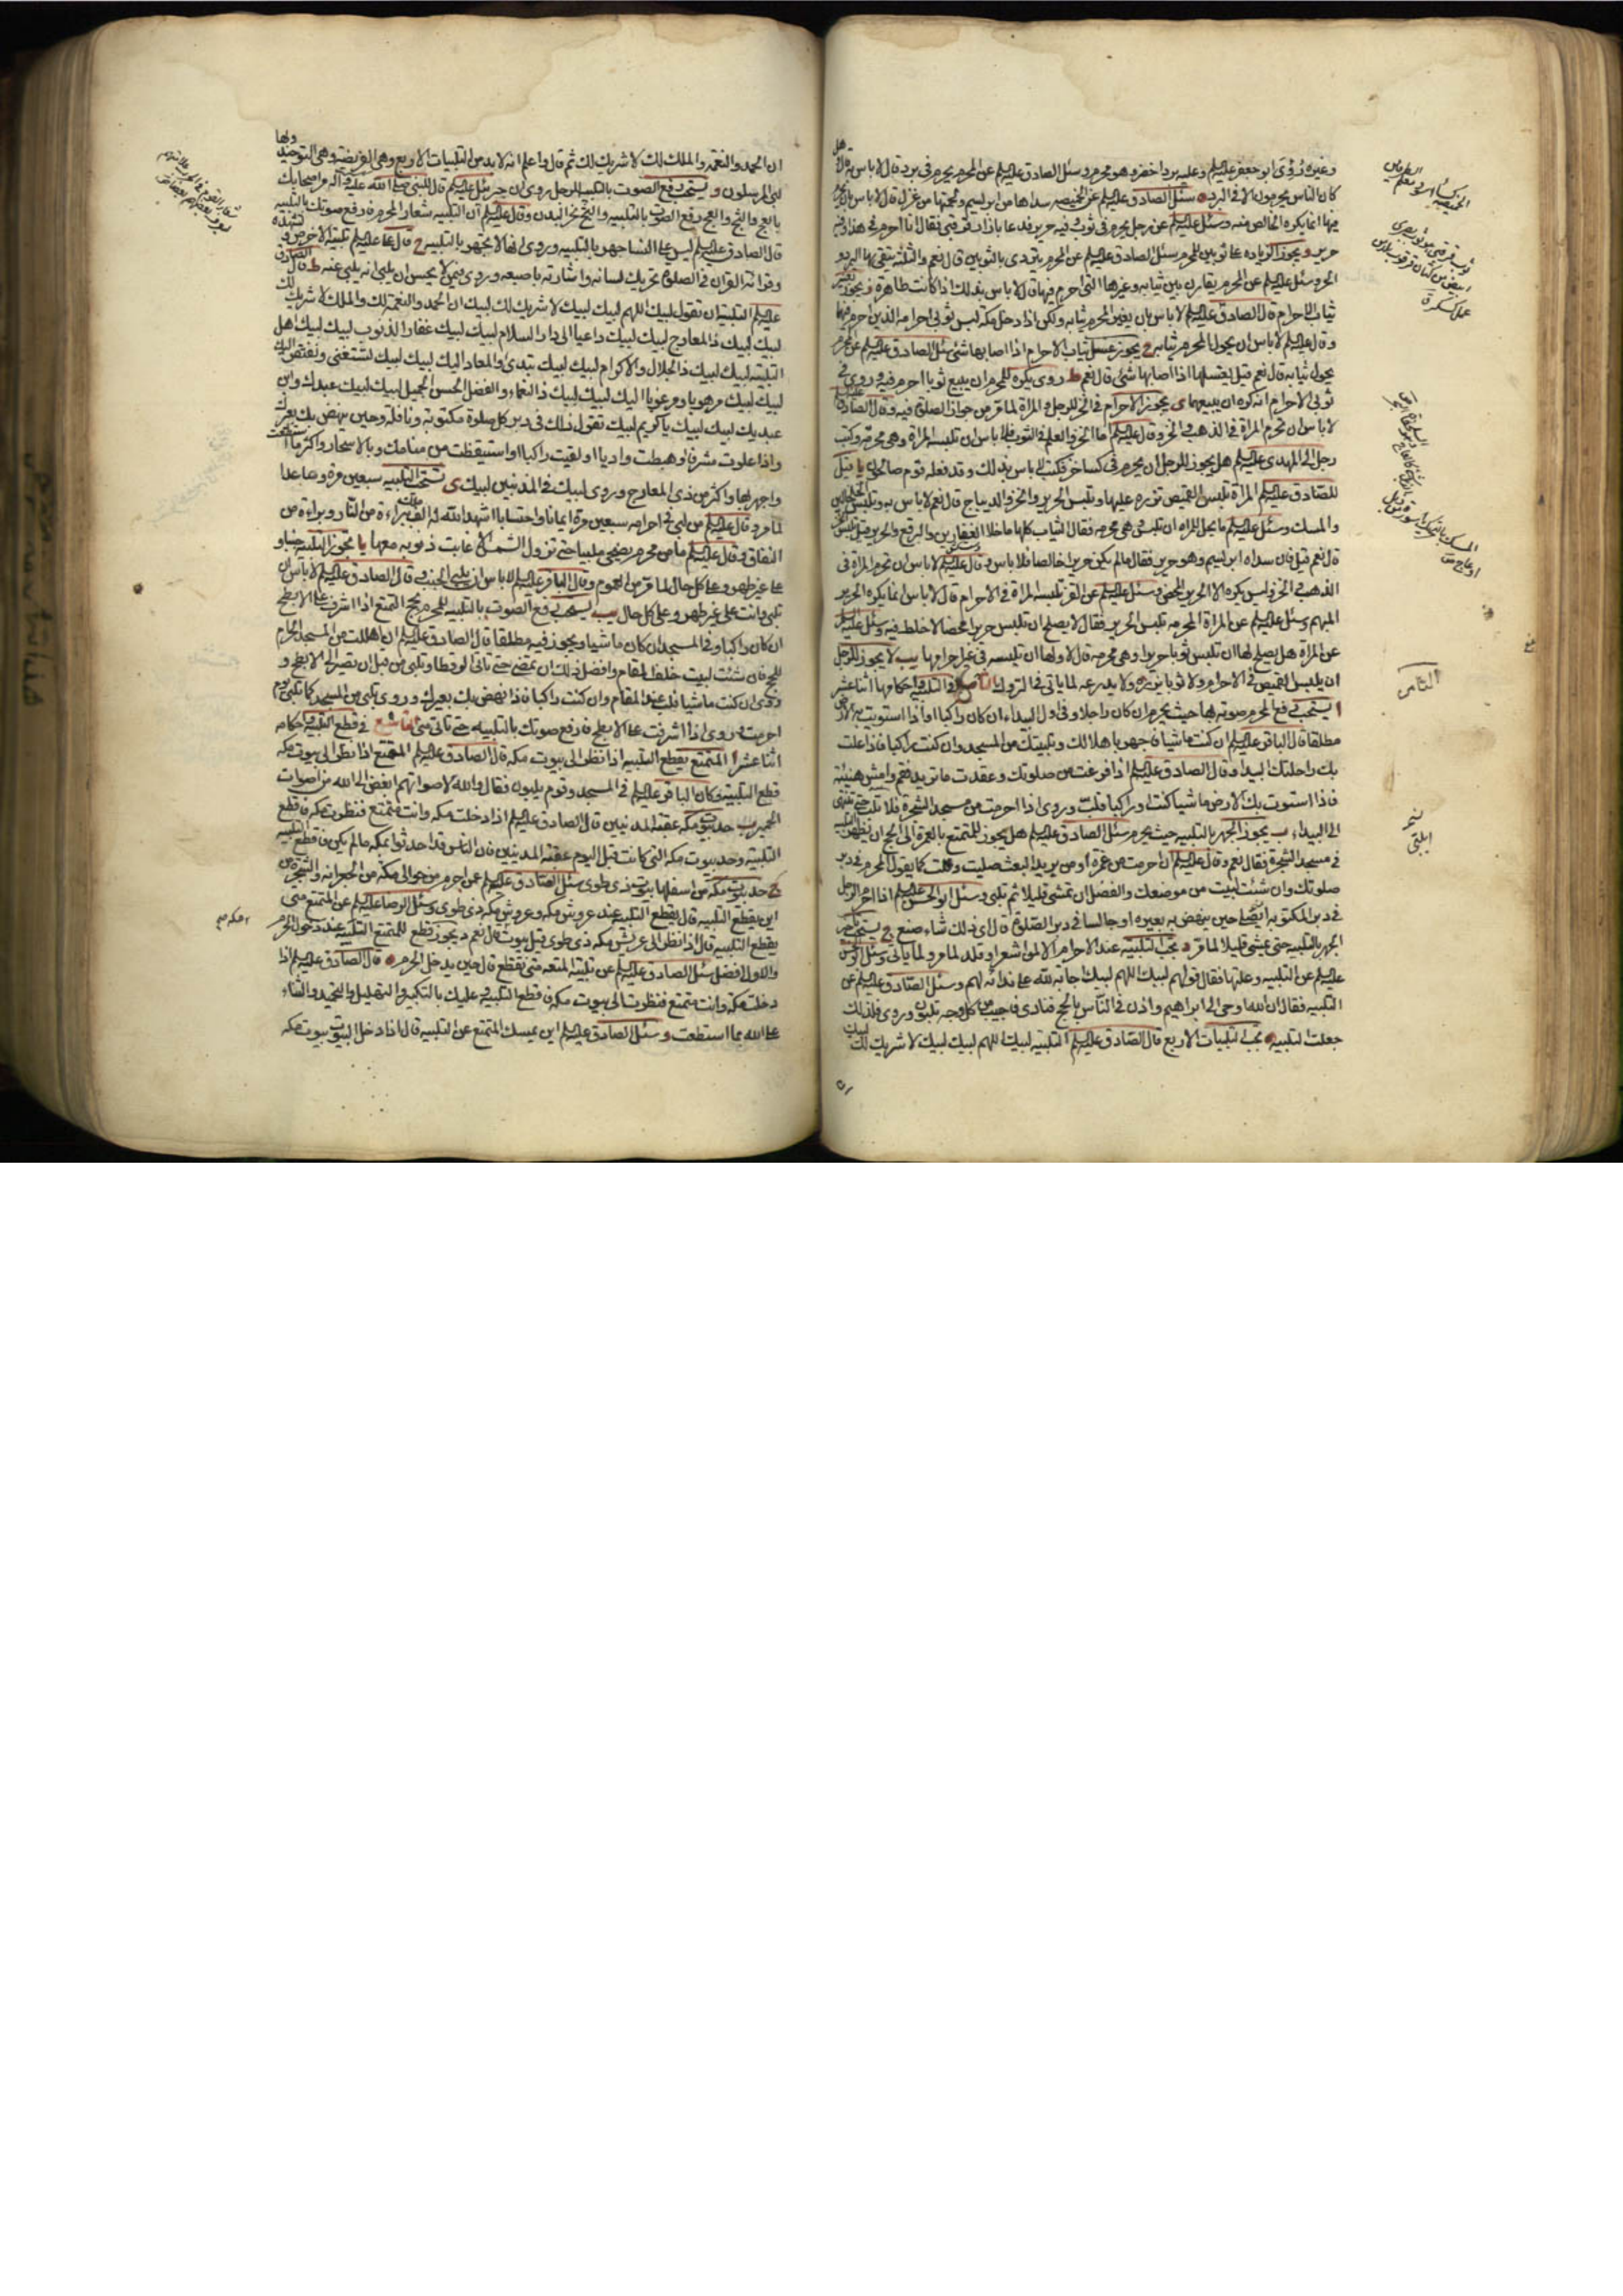 وغيره ورؤى ابو جعفر عليه السلم وعليه برد اخضر وهو محرم وسئل الصادق عليه السلم عن المحرم يحرم في برد قال لا باس به وهل
كان الناس يحرمون الا في البرد ه سئل الصادق عليه السلم عن الخميصة سداها من ابريسم ولحمتها من غزل قال لا باس بان يحرم
فيها انما يكره الخالص منه وسئل عليه السلم عن رجل يحرم في ثوب فيه حرير فدعا بازار قرقبي فقال انا احرم في هذا وفيه
حرير و يجوز الزيادة على ثوبين للمحرم سئل الصادق عليه السلم عن المحرم يتردى بالثوبين قال نعم والثلثة يتقي بها البرد و
الحر وسئل عليه السلم عن المحرم يقارن بين ثيابه وغيرها التي احرم فيها قال لا باس بذلك اذا كانت طاهرة ز يجوز تغيير
ثياب الاحرام قال الصادق عليه السلم لا باس بان يغير المحرم ثيابه ولكن اذا دخل مكة لبس ثوبي احرامه الذين احرم فيهما
وقال عليه السلم لا باس ان يحول المحرم ثيابه ح يجوز غسل ثياب الاحرام اذا اصابها شئ سئل الصادق عليه السلم عن المحرم
يحول ثيابه قال نعم قيل يغسلها اذا اصابها شئ قال نعم ط روى يكره للمحرم ان يبيع ثوبا احرم فيه وروى في
ثوبي الاحرام انه كره ان يبيعهما ى يجوز الاحرام في الخز للرجل و المراة لما مر من جواز الصلوة فيه وقال الصادق عليه السلم
لا باس ان تحرم المراة في الذهب و الخز وقال عليه السلم اما الخز والعلم في الثوب فلا باس ان تلبسه المراة وهي محرمة وكتب
رجل الى المهدى عليه السلم هل يجوز للرجل ان يحرم في كساء خز فكتب لا باس بذلك وقد فعله قوم صالحون يا قيل
للصادق عليه السلم المراة تلبس القميص تزره عليها وتلبس الحرير والخز والديباج قال نعم لا باس به وتلبس الخلخالين
والمسك وسئل عليه السلم ما يحل للمراة ان تلبس وهي محرمة فقال الثياب كلها ما خلا القفازين والبرقع والحرير قيل تلبس الخز
قال نعم قيل فان سداه ابريسم وهو حرير فقال ما لم يكن حريرا خالصا فلا باس وقال عليه السلم لا باس ان تحرم المراة في
الذهب و الخز وليس يكره الا الحرير المحض وسئل عليه السلم عن القز تلبسه المراة في الاحرام قال لا باس انما يكره الحرير
المبهم وسئل عليه السلم عن المراة المحرمة تلبس الحرير فقال لا يصلح ان تلبس حريرا محضا لا خلط فيه وسئل عليه السلم
عن المراة هل يصلح لها ان تلبس ثوبا حريرا وهي محرمة قال لا ولها ان تلبسه في غير احرامها يب لا يجوز للرجل
ان يلبس القميص في الاحرام ولا ثوبا يزره ولا يدرعه لما ياتي في التروك الثامن في التلبية واحكامها اثنا عشر
ا يستحب رفع المحرم صوته بها حيث يحرم ان كان راجلا وفي اول البيداء ان كان راكبا او اذا استوت به الارض
مطلقا قال الباقر عليه السلم ان كنت ماشيا فاجهر باهلالك وتلبيتك من المسجد وان كنت راكبا فاذا علت
بك راحلتك البيداء وقال الصادق عليه السلم اذا فرغت من صلوتك وعقدت ما تريد فقم وامش هنيئة
فاذا استوت بك الارض ماشيا كنت او راكبا فلب وروى اذا احرمت من مسجد الشجرة فلا تلب حتى تنتهي
الى البيداء ب يجوز الجهر بالتلبية حيث يحرم سئل الصادق عليه السلم هل يجوز للمتمتع بالعمرة الى الحج ان يظهر التلبية
في مسجد الشجرة فقال نعم وقال عليه السلم ان احرمت من غمرة او من بريد البعث صليت وقلت كما يقول المحرم في دبر
صلوتك وان شئت لبيت من موضعك والفضل ان تمشي قليلا ثم تلبي وسئل ابو الحسن عليه السلم اذا احرم الرجل
في دبر المكتوبة ايلبي حين ينهض به بعيره او جالسا في دبر الصلوة قال اى ذلك شاء صنع ج يستحب
الجهر بالتلبية حتى يمشي قليلا لما مر د تجب التلبية عند الاحرام الا لمن اشعر او قلد لما مر ولما ياتي وسئل ابو الحسن
عليه السلم عن التلبية وعلتها فقال قولهم لبيك اللهم لبيك اجابة لله على ندائه لهم وسئل الصادق عليه السلم عن
التلبية فقال ان الله اوحى الى ابراهيم واذن في الناس بالحج فنادى فاجيب من كل وجه يلبون وروى فلذلك
جعلت التلبية ه تجب التلبيات الاربع قال الصادق عليه السلم التلبية لبيك اللهم لبيك لبيك لا شريك لك لبيك
الثامن
ان الحمد والنعمة والملك لك لا شريك لك ثم قال واعلم انه لا بد من التلبيات الاربع وهي الفريضة وهي التوحيد ولها
لبى المرسلون و يستحب رفع الصوت بالتلبية للرجل روى ان جبرئيل عليه السلم قال للنبي صلى الله عليه وآله مر اصحابك
بالعج والثج والعج رفع الصوت بالتلبية والثج نحر البدن وقال عليه السلم ان التلبية شعار المحرم فارفع صوتك بالتلبية
قال الصادق عليه السلم ليس على النساء جهر بالتلبية وروى انها لا تجهر بالتلبية ح قال على عليه السلم تلبية الاخرس وتشهده
وقرائة القران في الصلوة تحريك لسانه واشارته باصبعه وروى فيمن لا يحسن ان يلبى انه يلبى عنه ط قال الصادق
عليه السلم التلبية ان تقول لبيك اللهم لبيك لبيك لا شريك لك لبيك ان الحمد والنعمة لك والملك لا شريك لك
لبيك لبيك ذا المعارج لبيك لبيك داعيا الى دار السلام لبيك لبيك غفار الذنوب لبيك لبيك اهل
التلبية لبيك لبيك ذا الجلال والاكرام لبيك لبيك تبدئ والمعاد اليك لبيك لبيك تستغني ويفتقر اليك
لبيك لبيك مرهوبا ومرغوبا اليك لبيك لبيك ذا النعماء والفضل الحسن الجميل لبيك لبيك عبدك وابن
عبديك لبيك لبيك يا كريم لبيك تقول ذلك في دبر كل صلوة مكتوبة ونافلة وحين ينهض بك بعيرك
واذا علوت مشرفا او هبطت واديا او لقيت راكبا او استيقظت من منامك وبالاسحار واكثر ما استطعت
واجهر بها واكثر من ذى المعارج وروى لبيك في المذنبين لبيك ى تستحب التلبية سبعين مرة فصاعدا
لما مر وقال عليه السلم من لبى في احرامه سبعين مرة ايمانا واحتسابا اشهد الله له الف ملك ببراءة من النار وبراءة من
النفاق وقال عليه السلم ما من محرم يضحى ملبيا حتى تزول الشمس الا غابت ذنوبه معها يا تجوز التلبية جنبا و
على غير طهر وعلى كل حال لما مر من العموم وقال الباقر عليه السلم لا باس ان يلبى الجنب و قال الصادق عليه السلم لا باس ان
تلبى وانت على غير طهر وعلى كل حال يب يستحب رفع الصوت بالتلبية للمحرم بحج التمتع اذا اشرف على الابطح
ان كان راكبا وفي المسجد ان كان ماشيا ويجوز فيه مطلقا قال الصادق عليه السلم ان اهللت من المسجد الحرام
للحج فان شئت لبيت خلف المقام وافضل ذلك ان تمضي حتى تاتى الرقطا وتلبى من قبل ان تصير الى الابطح و
روى ان كنت ماشيا فلب عند المقام وان كنت راكبا فاذا نهض بك بعيرك وروى تلبى من المسجد كما تلبى يوم
احرمت وروى اذا اشرفت على الابطح فارفع صوتك بالتلبية حتى تاتى منى التاسع في قطع التلبية و احكامه
اثنا عشر ا المتمتع يقطع التلبية اذا نظر الى بيوت مكة قال الصادق عليه السلم المتمتع اذا نظر الى بيوت مكة
قطع التلبية وكان الباقر عليه السلم في المسجد وقوم يلبون فقال والله لاصواتهم ابغض الى الله من اصوات
الحمير ب حد بيوت مكة عقبة المدنيين قال الصادق عليه السلم اذا دخلت مكة وانت متمتع فنظرت مكة فاقطع
التلبية وحد بيوت مكة التي كانت قبل اليوم عقبة المدنيين فان الناس قد احدثوا بمكة ما لم يكن فاقطع التلبية
ج حد بيوت مكة من اسفلها بيوت ذى طوى سئل الصادق عليه السلم عن احرم من حوالى مكة من الجعرانة والشجرة من
اين يقطع التلبية قال يقطع التلبية عند عروش مكة وعروش مكة ذى طوى وسئل الرضا عليه السلم عن المتمتع متى
يقطع التلبية قال اذا نظر الى عريش مكة ذى طوى قيل بيوت قال نعم د يجوز قطع المتمتع التلبية عند دخول الحرم
والاول افضل سئل الصادق عليه السلم عن تلبية المتعة متى تقطع قال حين يدخل الحرم ه قال الصادق عليه السلم اذا
دخلت مكة وانت متمتع فنظرت الى بيوت مكة فاقطع التلبية و عليك بالتكبير والتهليل والتحميد والثناء
على الله بما استطعت وسئل الصادق عليه السلم اين يمسك المتمتع عن التلبية قال اذا دخل البيوت بيوت مكة